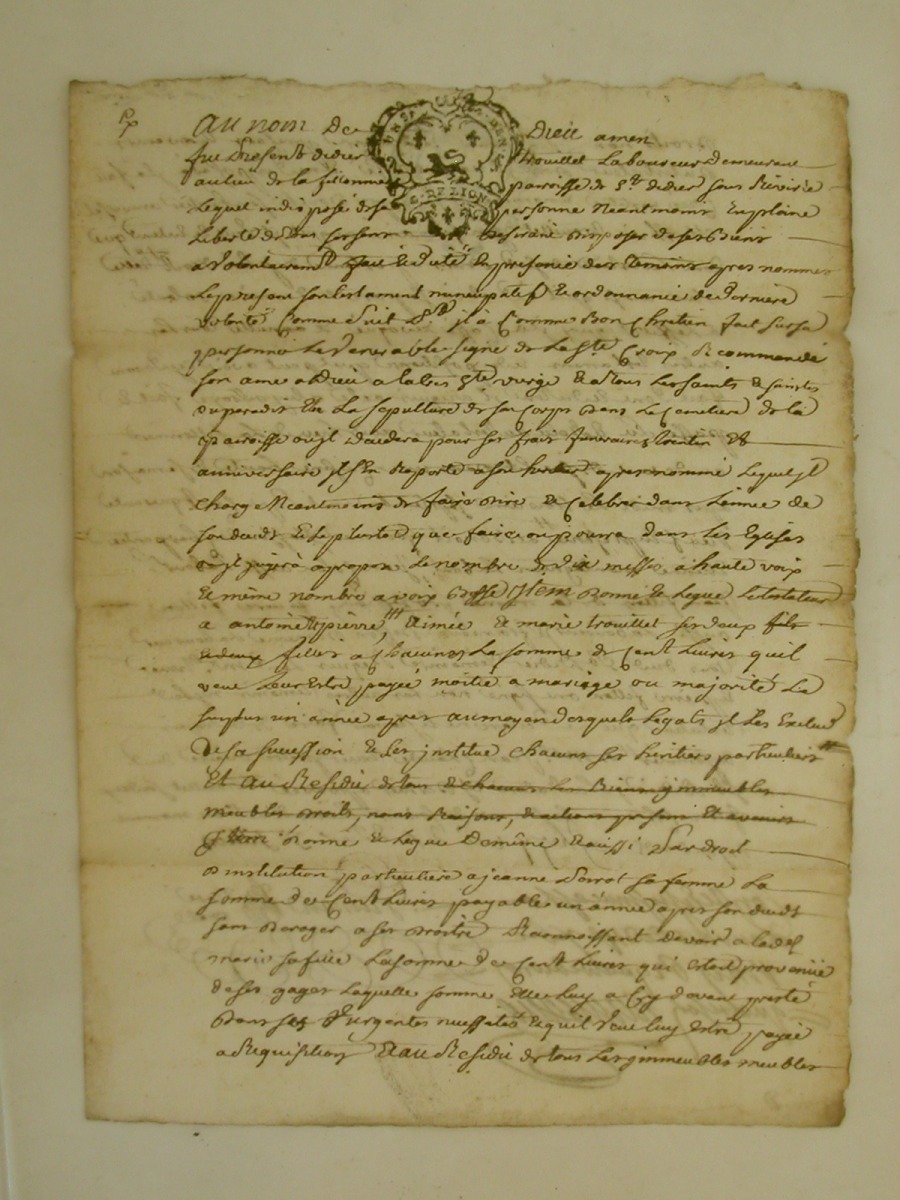 Au nom De Dieu amen
fut Présent didier trouillet Laboureur demeurant
au lieu de la fillonnière parroisse de St didier sous Riviric
Lequel indisposé de sa personne Neantmoins En plaine
Liberté de tous ses sens desirant disposer de ses Biens
a Volontairemt fait & Dicté En presence des temoins apres nommés
Le present son testament nuncupatif & ordonnance de Derniere
volonté Comme s'uit Pr jl à Comme Bon Chretien fait sur sa
personne Le Venerable signe de La Ste Croix Recommandé
son ame a Dieu a la Ste vierge & a tous Les saints & saintes
du paradis Elu La sepulture de son Corps dans Le Cemetiere de la
parroisse ou jl decedera pour ses frais funeraires &
anniversaire jl s'En Raporte a son heritier apres nommé Lequel jl
charge Neantmoins de faire dire & Celebrer dans L'année de
son deceds & Le plustot que faire ce pourra dans Les Eglises
ou jl jugera a propos Le nombre de dix messes a haute voix
Et même nombre a voix Basse Jtem donne & Legue Le testateur
a antoine & pierre, & aimée & marie trouillet ses deux fils
& deux filles a Chacunes La somme de Cent Livres qu'il
veut Leur Estre payée moitié a mariage ou majorité Le
surplus un année apres au moyen desquels Legats jl Les Exclud
De sa succession & Les jnstitue chacuns ses heritiers particuliers
Et au Residu de tous & chacuns Les Biens jmmeubles
meubles droits, noms Raisons, & actions presens Et avenirs
Jtem Donne & Legue De même & aussi Par droit
D institution particuliere a jeanne sa femme La
somme de Cent Livres payable un année apres son deceds
sans deroger a ses droits Reconnoissant devoir a lad
marie sa fille La somme de Cent Livres qui estoit provenüe
de ses gages Laquelle somme Elle Luy a Cy devant presté
dans ses Vurgentes nessesités & quil Veut luy estre payée
a Requisition Et au Residu de tous Les jmmeubles meubles